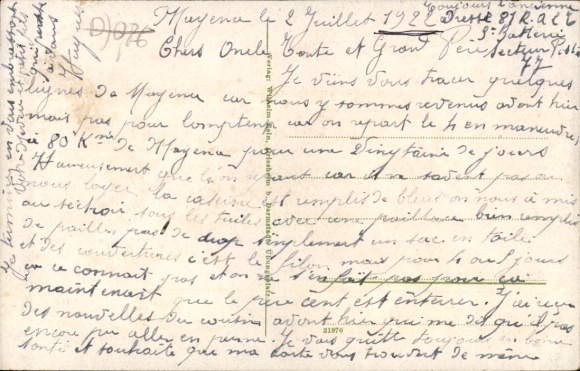 Mayence le 2 Juillet 1922
Toujours l'ancienne
Dresse 81 R.A.L.T
3e Batterie
Secteur Poste
77
Chers Oncle Tante et Grand Père
Je viens vous tracer quelques
lignes de Mayence car nous y sommes revenus avant hier
mais pas pour longtemps car on repart le 4 en manœuvres
à 80 Km de Mayence pour une vingtaine de jours
Heureusement que l'on repart car il ne savent pas ou
nous loger la caserne est remplis de bleus on nous a mis
au séchoir sous les tuiles avec une paillasse bien remplis
de pailles pas de drap simplement un sac en toile
et des couvertures c'est le filon mais pour 4 ou 5 jours
ça ce connait pas et on ne s'en fait pas pour ça
maintenant que le père cent est enterer. J'ai reçu
des nouvelles du cousin avant hier qui me dit qu'il pas
encore pu aller en perme. Je vous quitte toujours en bonne
santé et souhaite que ma carte vous trouvent de même
Je termine en vous embrassant
qui reste
à vous
Verlag Wilhelm Gerling, Darmstadt
31870